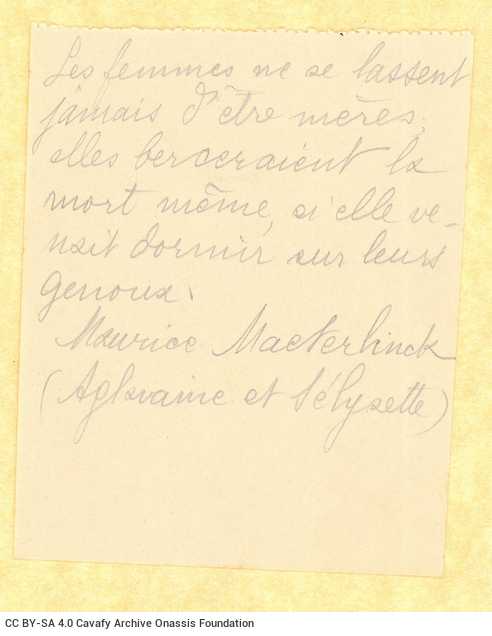 Les femmes ne se lassent
jamais d'être mères,
elles berceraient la
mort même, si elle ve-
nait dormir sur leurs
genoux.
Maurice Maeterlinck
(Aglavaine et Sélysette)
CC BY-SA 4.0 Cavafy Archive Onassis Foundation